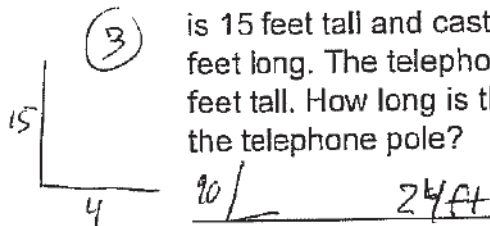 3
is 15 feet tall and cast
feet long. The telepho
feet tall. How long is t
the telephone pole?
15
4
90
24ft